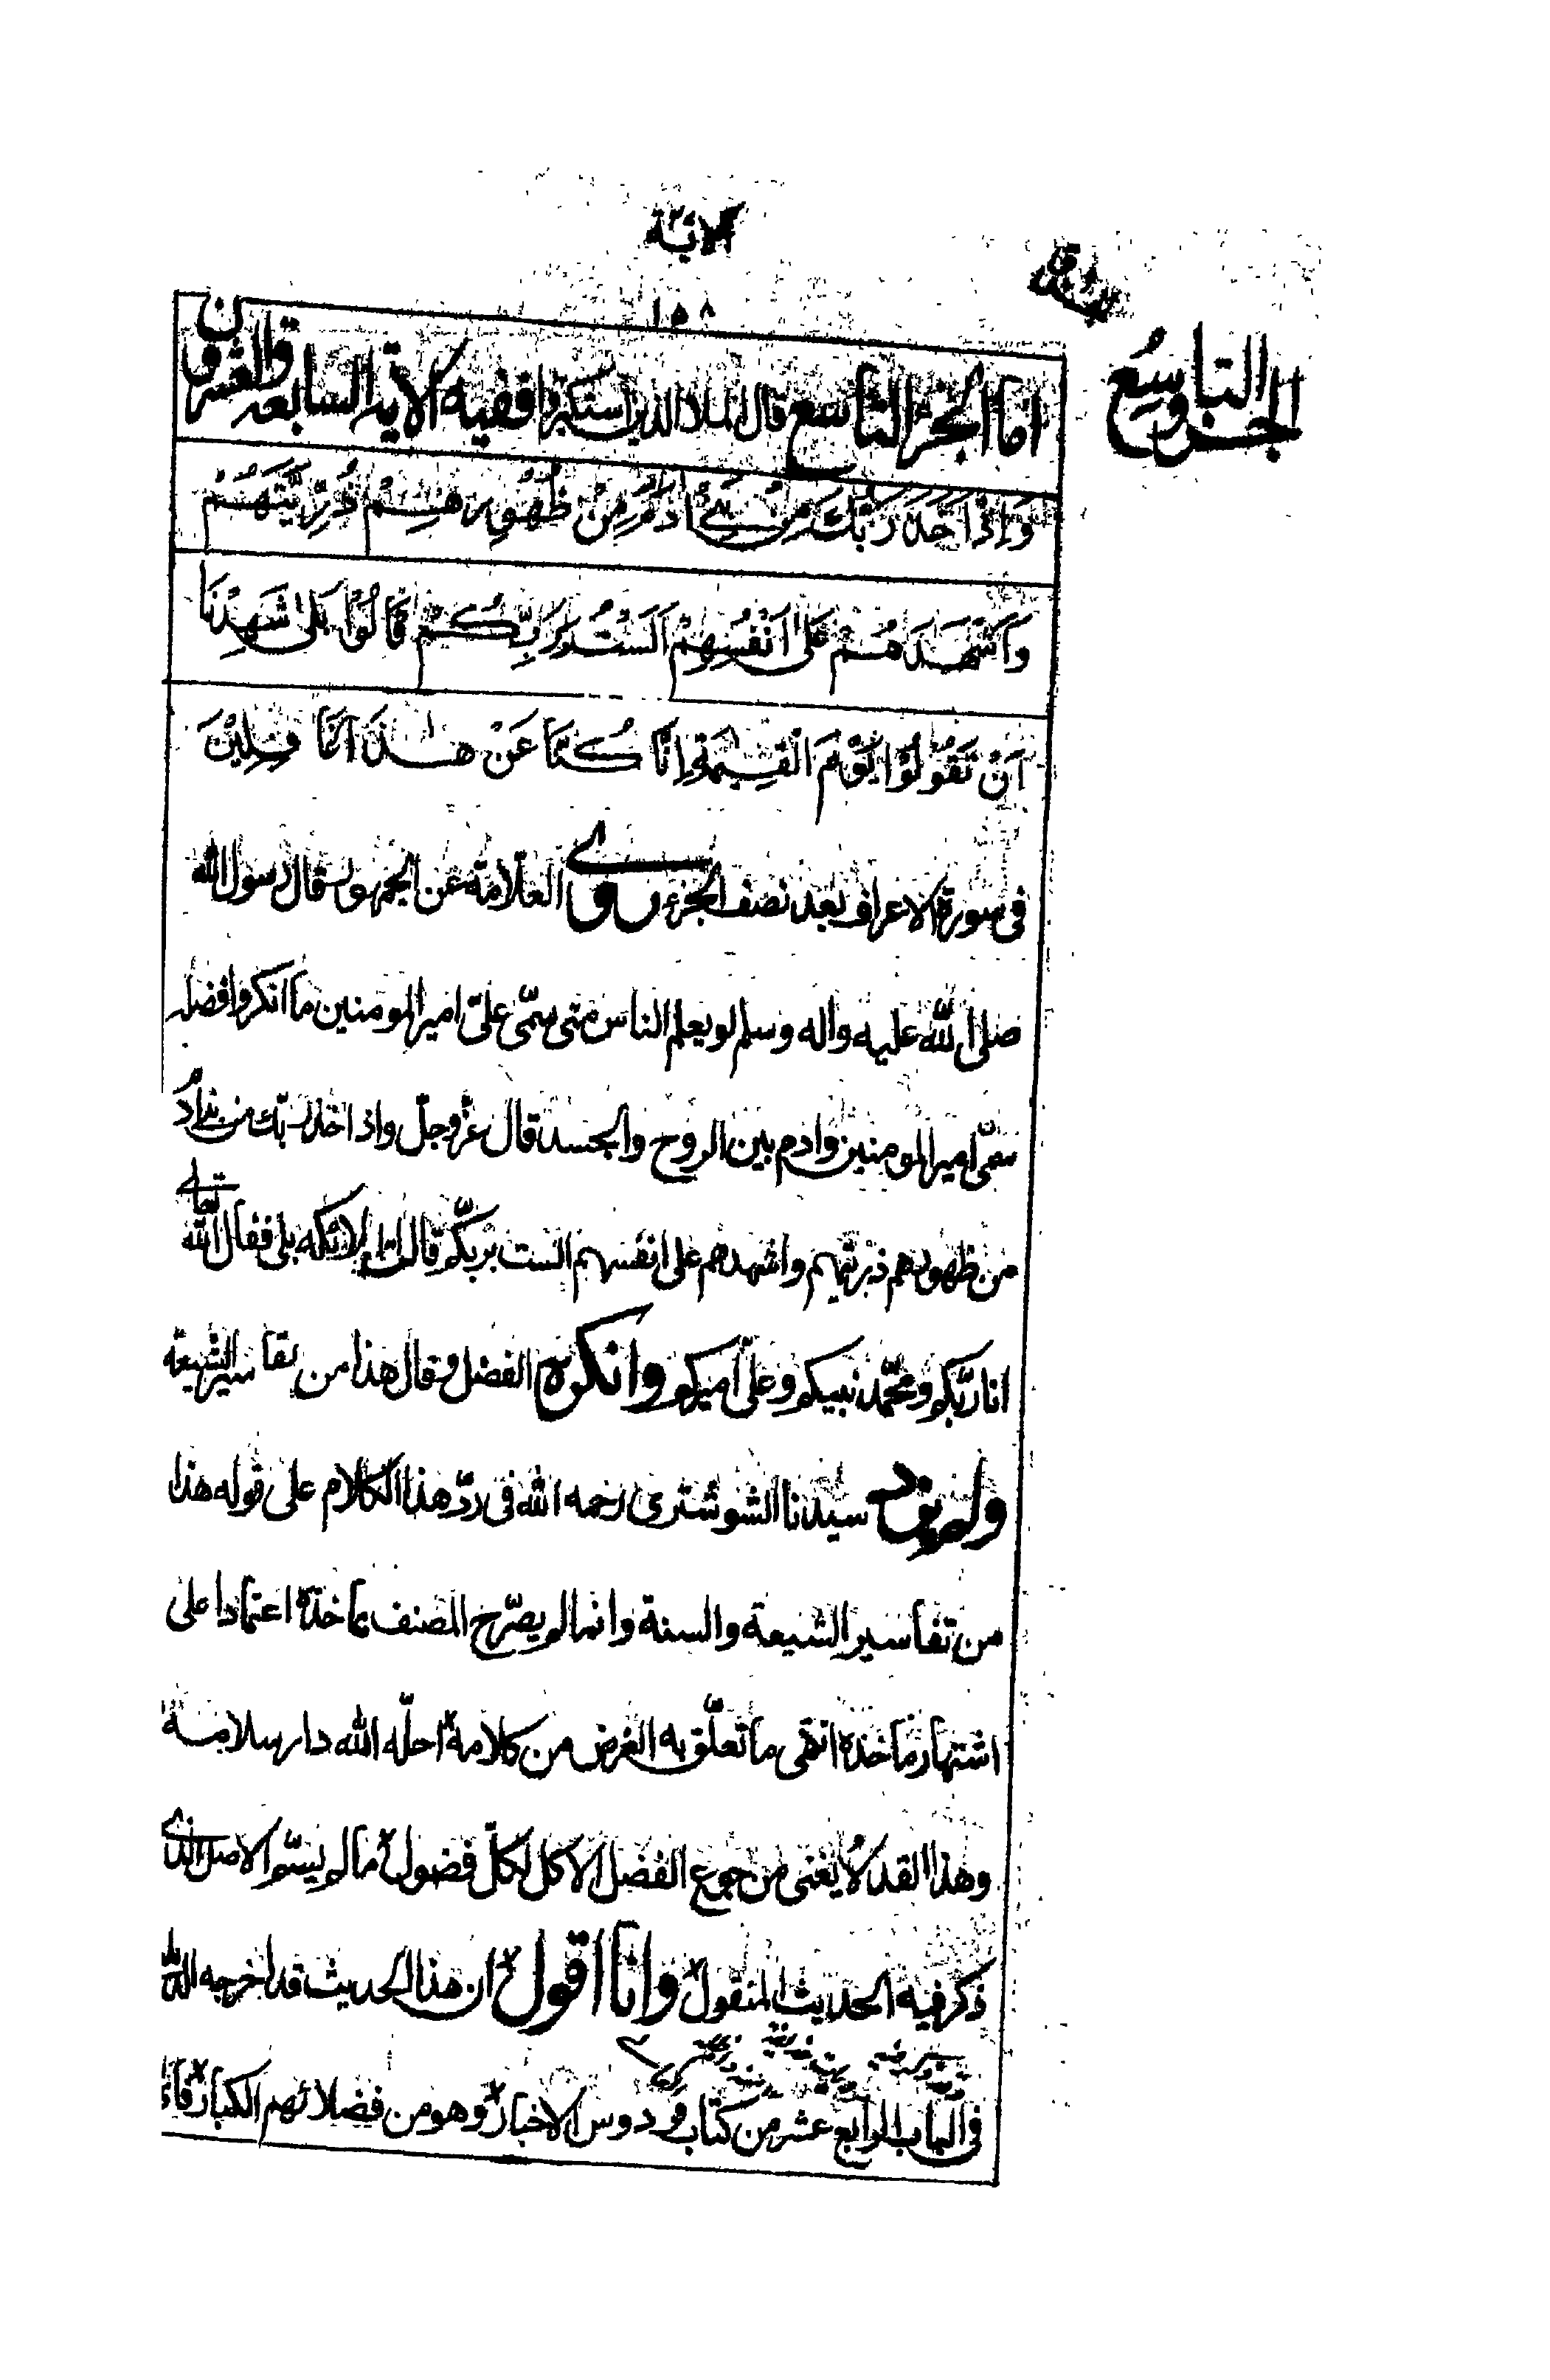 الاية
١٥٨
الجزو التاسع
اما الجزء التاسع قال الملا الذين استكبروا ففيه الاية السابعة والعشرون
وَاِذْ اَخَذَ رَبُّكَ مِنْ بَنِيْ اٰدَمَ مِنْ ظُهُوْرِهِمْ ذُرِّيَّتَهُمْ
وَاَشْهَدَهُمْ عَلٰى اَنْفُسِهِمْ اَلَسْتُ بِرَبِّكُمْ قَالُوْا بَلٰى شَهِدْنَا
اَنْ تَقُوْلُوْا يَوْمَ الْقِيٰمَةِ اِنَّا كُنَّا عَنْ هٰذَا غَافِلِيْنَ
فى سورة الاعراف بعد نصف الجزء روى العلّامة عن الجمهور قال رسول الله
صلى الله عليه واله وسلم لو يعلم الناس متى سمّى علىّ امير المومنين ما انكروا فضله
سمّى امير المومنين وادم بين الروح والجسد قال عزّ وجلّ واذ اخذ ربّك من بنى ادم
من ظهورهم ذرّيّتهم واشهدهم على انفسهم الست بربّكم قالت الملائكه بلى فقال الله تعالى
انا ربّكم ومحمّد نبيكم وعلىّ اميركم وانكره الفضل وقال هذا من تفاسير الشيعة
ولم يزد سيدنا الشوشترى رحمه الله فى ردّ هذا الكلام على قوله هذا
من تفاسير الشيعة والسنة وانما لم يصرّح المصنف بماخذه اعتمادا على
اشتهار ماخذه انتهى ما تعلّق به الغرض من كلامه احلّه الله دار سلامه
وهذا القدر لا يغنى من جوع الفضل الاكل لكلّ فضول ما لم يسمّ الاصل الذى
ذكر فيه الحديث المنقول وانا اقول ان هذا الحديث قد اخرجه
فى الباب الرابع عشر من كتاب فردوس الاخبار وهو من فضلائهم الكبار